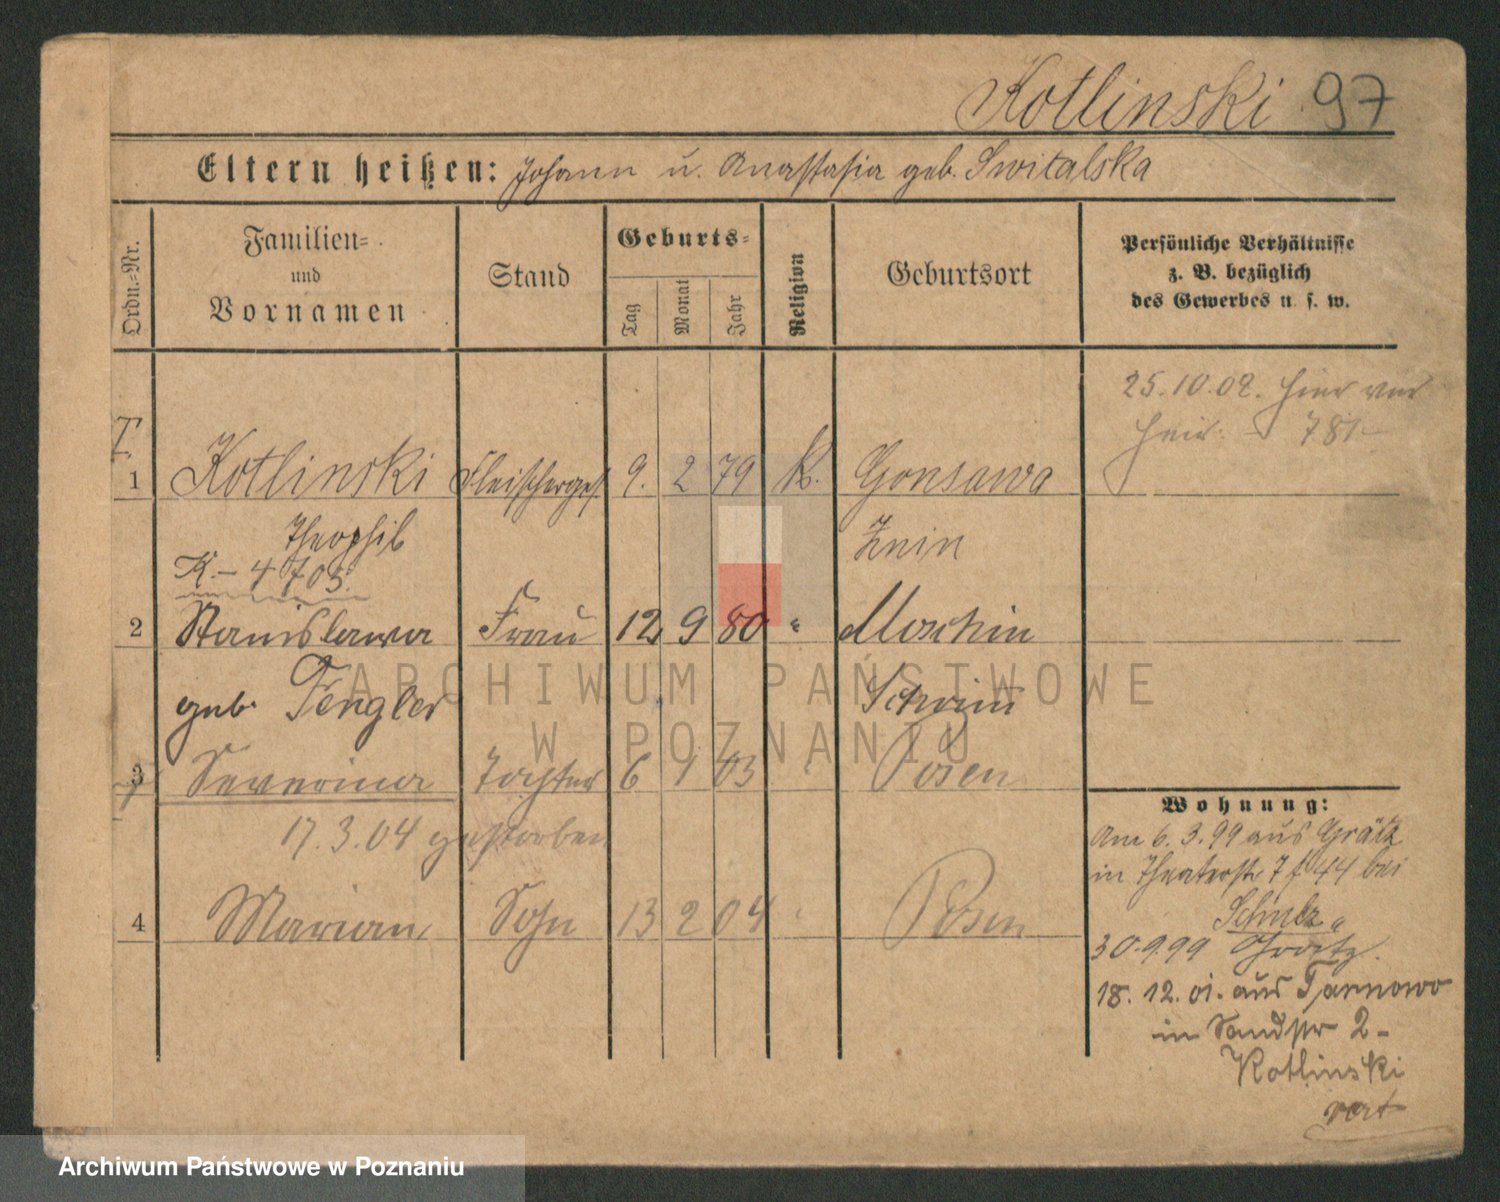 Kotlinski 97
Eltern heißen: Johann u. Anastasia geb. Switalska
Ordn.-Nr.
Familien-
und
Vornamen
Stand
Geburts-
Tag
Monat
Jahr
Religion
Geburtsort
Persönliche Verhältnisse
z. B. bezüglich
des Gewerbes u. s. w.
25.10.02. hier ver
heir. - 781-
1 Kotlinski Fleischerges. 9. 2 79 K. Gonsawa
Theophil Znin
K.- 4705.
2 Stanislawa Frau 12 9 80 " Moschin
geb. Fengler Schrim
3 Severina Tochter 6 1 03 " Posen
17.3.04 gestorben
4 Marian Sohn 13 2 04 " Posen
Wohnung:
Am 6.3.99 aus Grätz
in Theaterstr 7 f 44 bei
Schulz
30.9.99 Grätz.
18.12.01. aus Tarnowo
in Sandstr 2-
Kotlinski
vert
ARCHIWUM PAŃSTWOWE
W POZNANIU
Archiwum Państwowe w Poznaniu